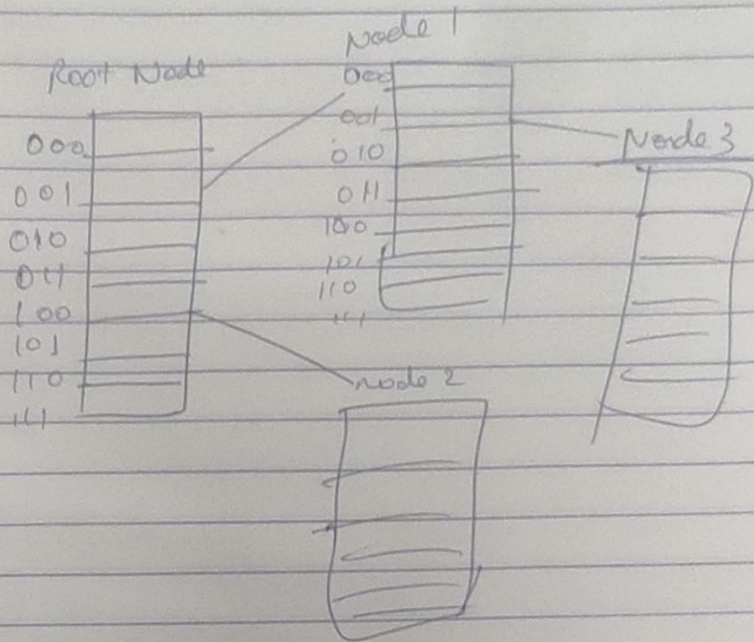 Root Node
000
001
010
011
100
101
110
111
Node 1
000
001
010
011
100
101
110
111
Node 3
node 2